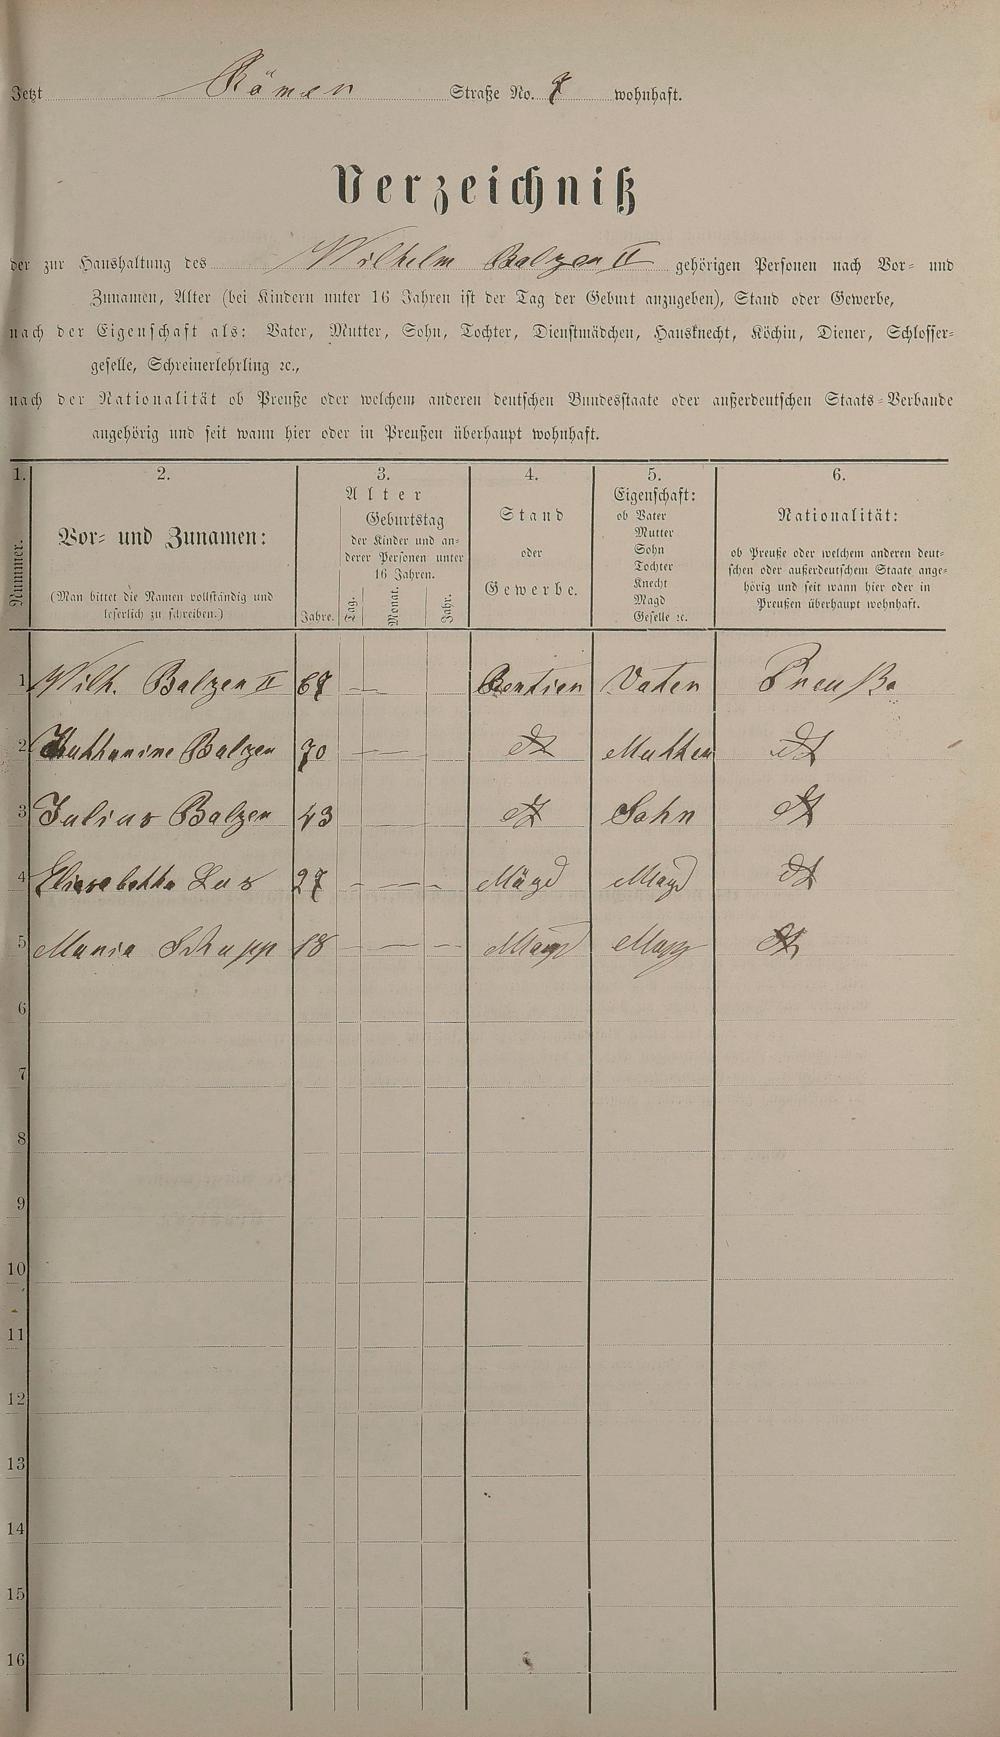 Jetzt Römer Straße No. 7 wohnhaft.
Verzeichniß
der zur Haushaltung des Wilhelm Balzer II gehörigen Personen nach Vor- und
Zunamen, Alter (bei Kindern unter 16 Jahren ist der Tag der Geburt anzugeben), Stand oder Gewerbe,
nach der Eigenschaft als: Vater, Mutter, Sohn, Tochter, Dienstmädchen, Hausknecht, Köchin, Diener, Schlosser-
geselle, Schreinerlehrling ꝛc.,
nach der Nationalität ob Preuße oder welchem anderen deutschen Bundesstaate oder außerdeutschen Staats-Verbande
angehörig und seit wann hier oder in Preußen überhaupt wohnhaft.
1. 2. 3. 4. 5. 6.
Nummer.
Vor- und Zunamen:
(Man bittet die Namen vollständig und
leserlich zu schreiben.)
Alter
Jahre.
Geburtstag
der Kinder und an-
derer Personen unter
16 Jahren.
Tag. Monat. Jahr.
Stand
oder
Gewerbe.
Eigenschaft:
ob Vater
Mutter
Sohn
Tochter
Knecht
Magd
Geselle ꝛc.
Nationalität:
ob Preuße oder welchem anderen deut-
schen oder außerdeutschem Staate ange-
hörig und seit wann hier oder in
Preußen überhaupt wohnhaft.
1 Wilh. Balzer II 67 — Rentier Vater Preuße
2 Katharine Balzer 70 — — dt Mutter dt
3 Julius Balzer 43 dt Sohn dt
4 Elisabetha 27 - — - Magd Magd dt
5 Maria Schupp 18 - — - Magd Magd dt
6
7
8
9
10
11
12
13
14
15
16